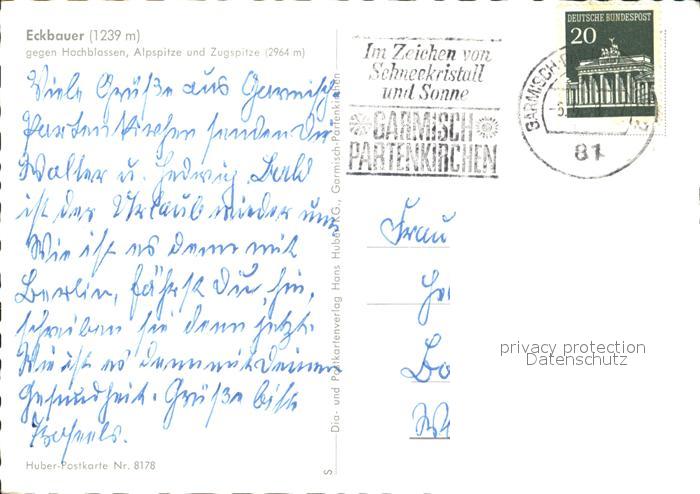 Eckbauer (1239 m)
gegen Hochblassen, Alpspitze und Zugspitze (2964 m)
Viele Grüße aus Garmisch
Partenkirchen senden Dir
Walter u. Hedwig. Bald
ist der Urlaub wieder um.
Wie ist es denn mit
Berlin, fährst Du hin,
schreiben sie denn jetzt.
Wie ist es denn mit Deiner
Gesundheit. Grüße bitte
Huber-Postkarte Nr. 8178
Dia- und Postkartenverlag Hans Huber KG., Garmisch-Partenkirchen
S
Im Zeichen von
Schneekristall
und Sonne
GARMISCH
PARTENKIRCHEN
DEUTSCHE BUNDESPOST
20
GARMISCH-
81
Frau
privacy protection
Datenschutz